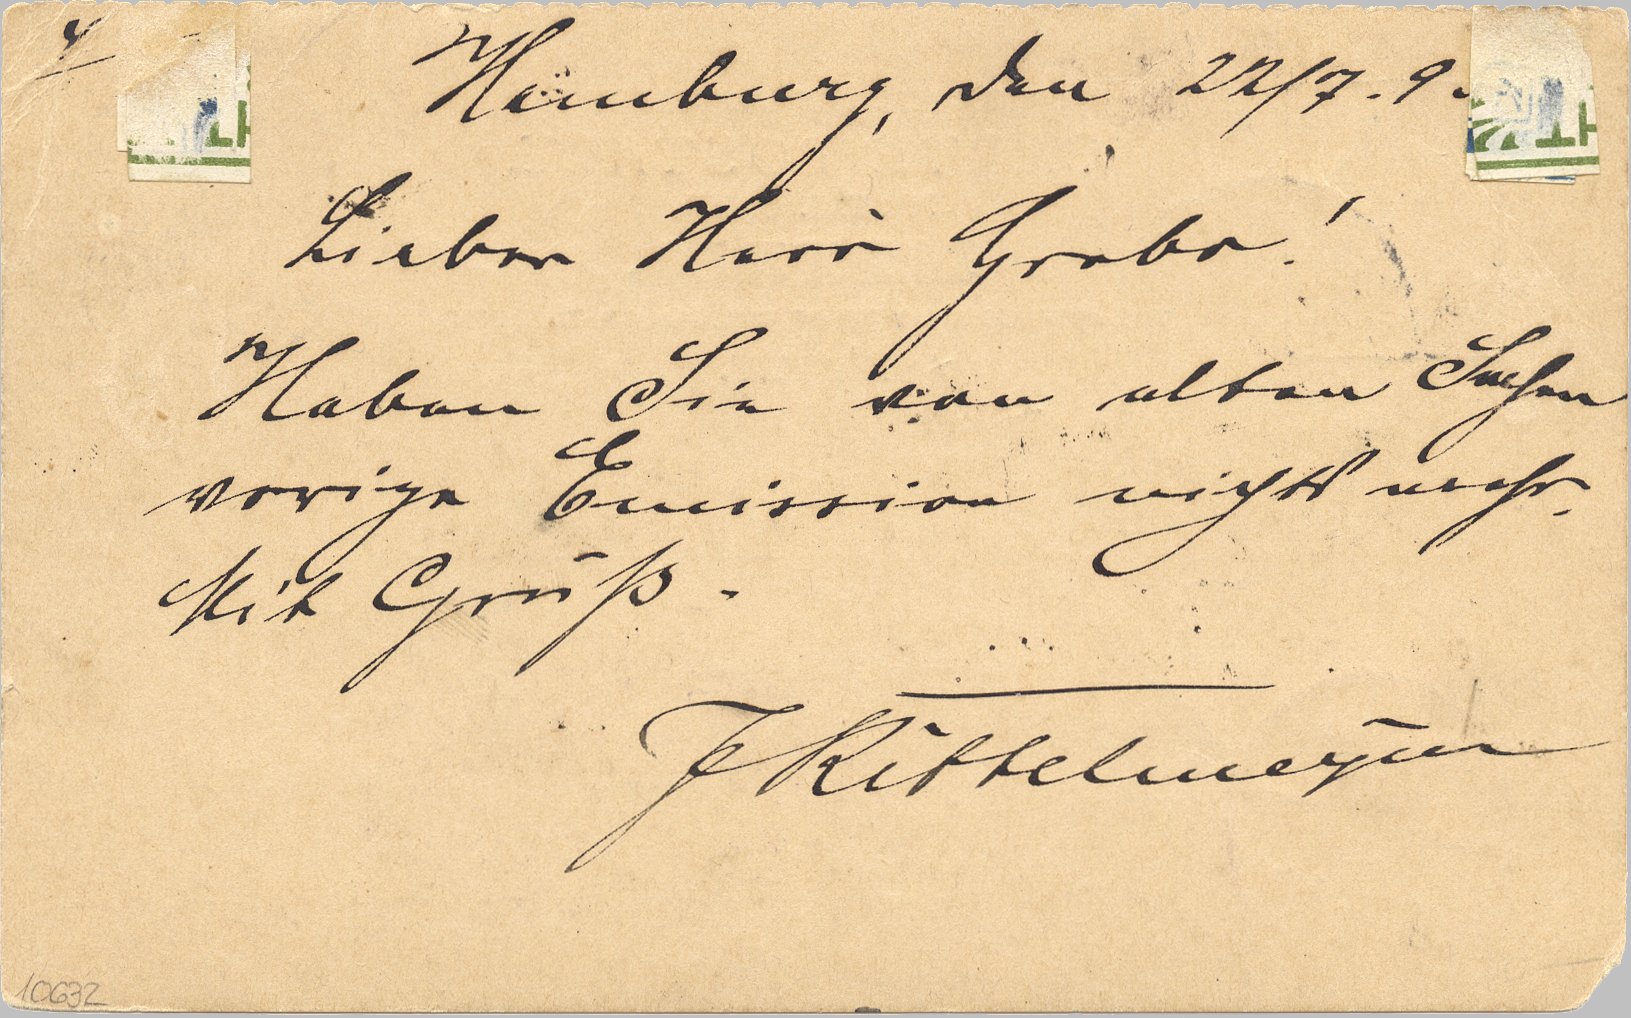 Hamburg, den 22/7. 9
Lieber Herr Grabo!
Haben Sie von alten Sachen
vorige Emission nichts mehr.
Mit Gruß.
J Rittelmeyer
10632